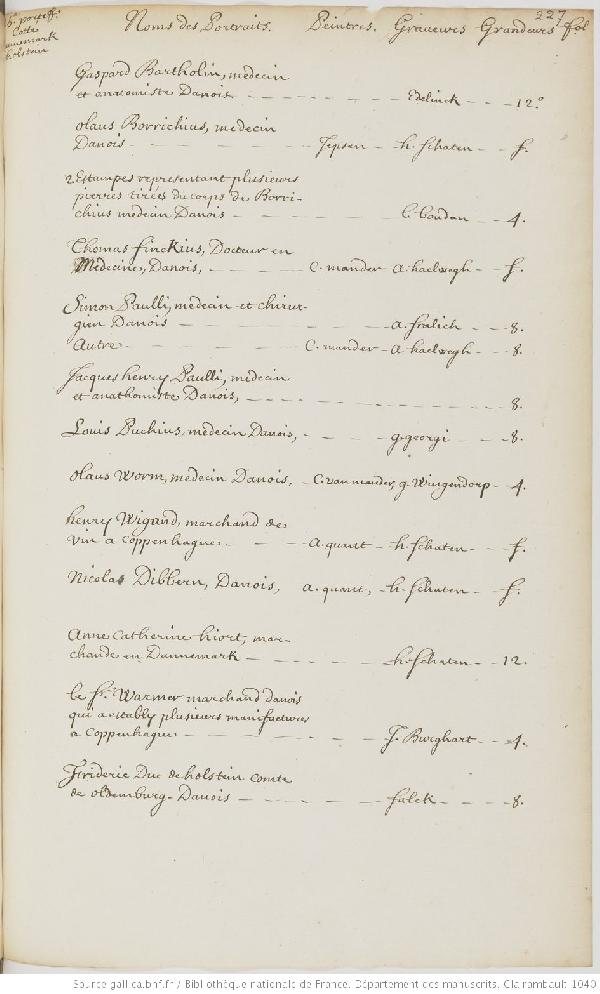 227
Noms des Portraits. Peintres. Graveurs Grandeurs fol
Dannemark
holstein
Gaspard Bartholin, medecin
et anatomiste Danois - - - Edelinck - - - 12.°
olaus Borrichius, medecin
Danois - - - Jepsen - h. schaten - - f.
2 Estampes representant plusieurs
pierres tirées du corps de Borri-
chius medecin Danois - - - - - 4.
Thomas finckius, Docteur en
Medecine, Danois, - - - C. mander - a. haelwegh - - f.
Simon Paulli, medecin et chirur-
gien Danois - - - a. fralich - - - 8.
Autre - - - C. mander - a. haelwegh - - - 8.
Jacques henry Paulli, medecin
et anathomiste Danois, - - - 8.
Louis Puchius, medecin Danois, - - - g. georgi - - - 8.
olaus Worm, medecin Danois, - C. van mander, g. Wingendorp - 4.
henry Wigand, marchand de
vin a Coppenhague - - - a. quant - h. schaten - - f.
Nicolas Dibbern, Danois, a. quant, - h. schaten - - f.
Anne Catherine hiort, mar-
chande en Dannemark - - - h. schaten - - 12.
le sr. Warmer marchand danois
qui a etably plusieurs manifactures
a Coppenhague - - - J. Burghart - - 4.
Frideric Duc de holstein comte
de oldemburg - Danois - - - falck - - - 8.
Source gallica.bnf.fr / Bibliothèque nationale de France. Département des manuscrits. Clairambault 1040